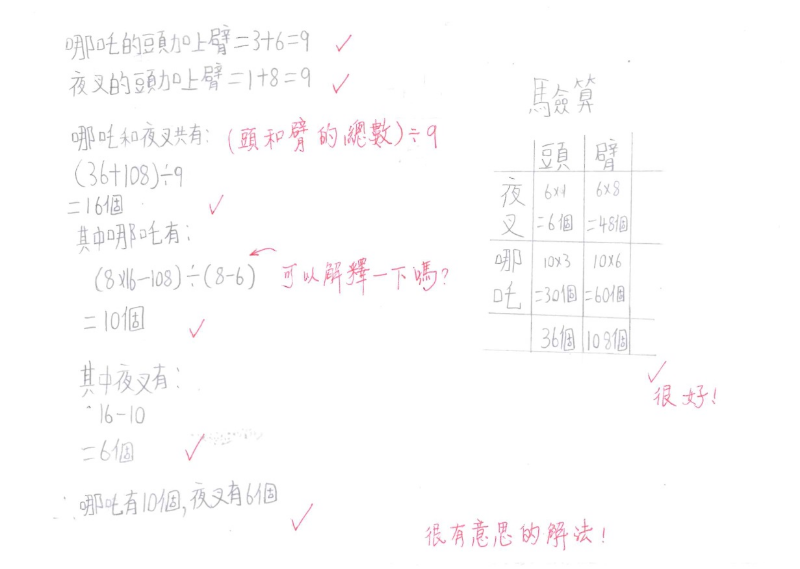 哪吒的頭加上臂=3+6=9
夜叉的頭加上臂=1+8=9
哪吒和夜叉共有: (頭和臂的總數)÷9
(36+108)÷9
=16個
其中哪吒有:
(8×16-108)÷(8-6) 可以解釋一下嗎?
=10個
其中夜叉有:
16-10
=6個
∴哪吒有10個,夜叉有6個
驗算
頭 臂
夜叉 6×1 6×8
=6個 =48個
哪吒 10×3 10×6
=30個 =60個
36個 108個
很好!
很有意思的解法!